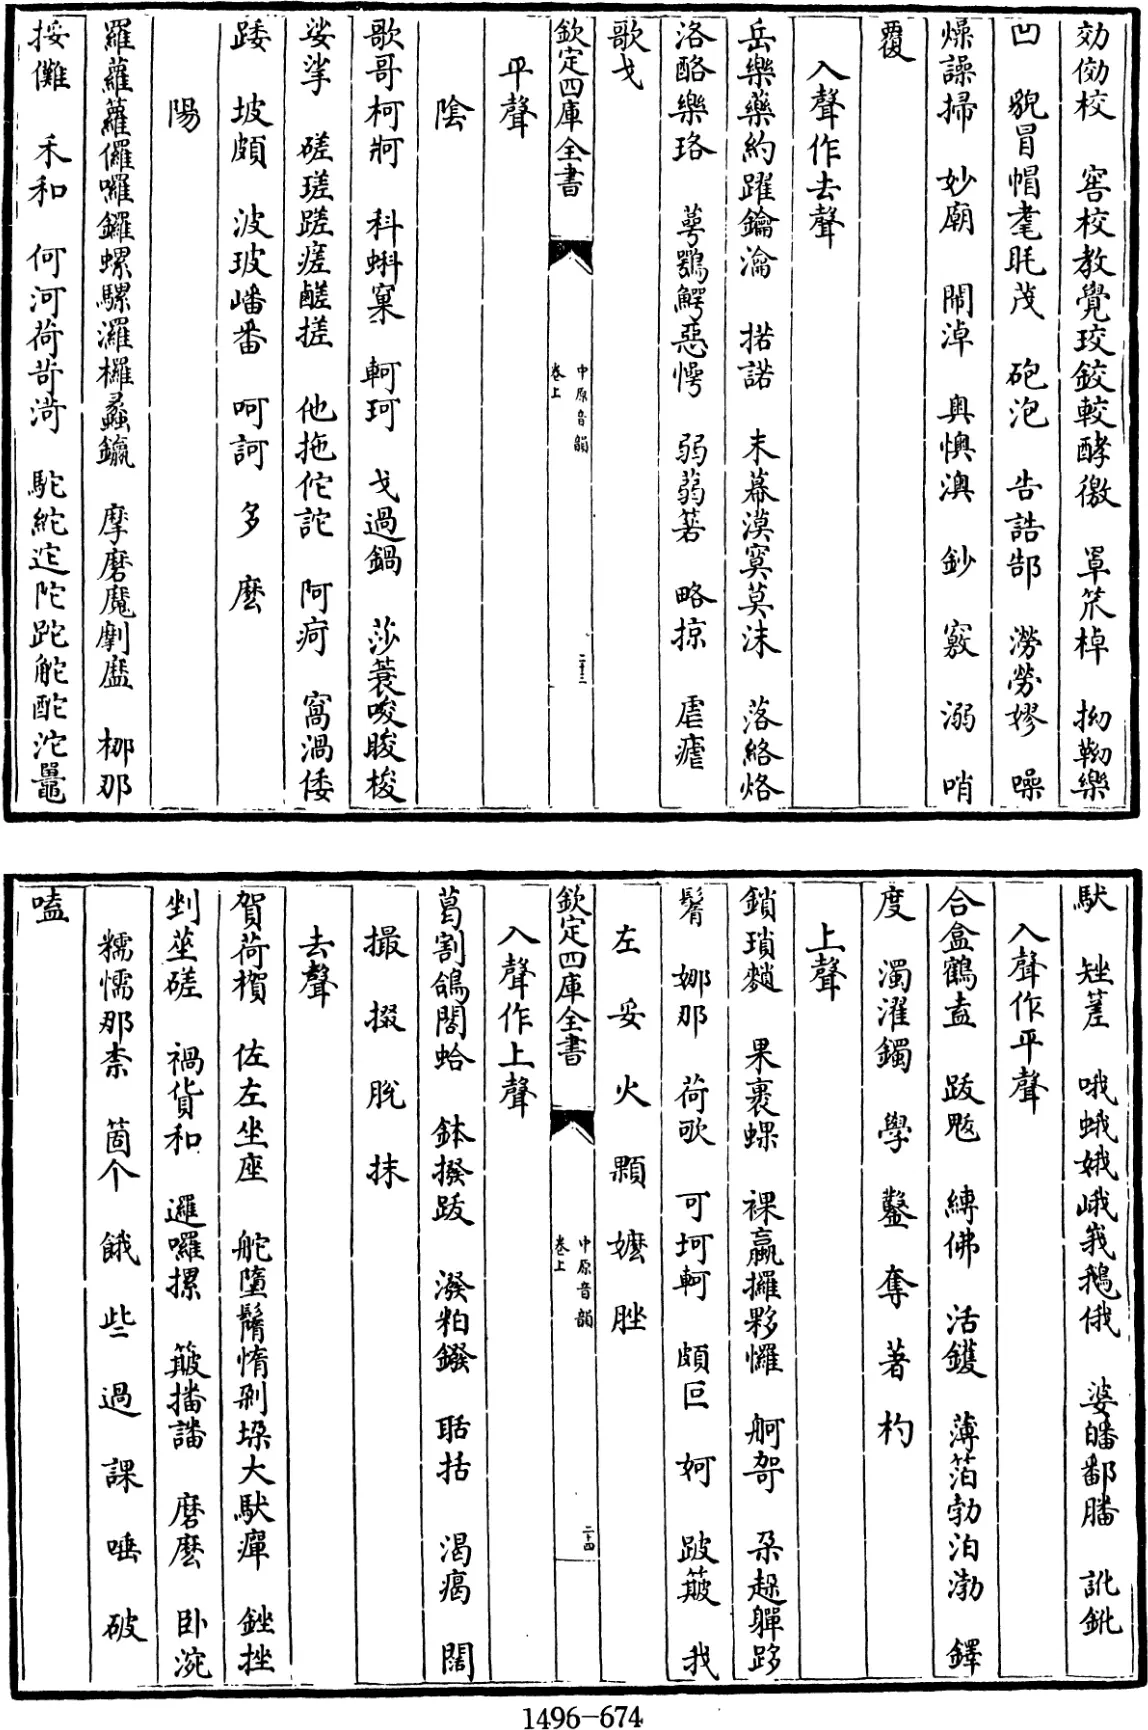 効傚校　窖校教覺珓鉸較酵徼　罩笊棹　拗靿樂
凹　貌冒帽耄眊茂　砲泡　告誥郜　澇勞嫪　噪
燥譟掃　妙廟　鬧淖　奧懊澳　鈔　竅　溺　哨
覆
入聲作去聲
岳樂藥約躍鑰瀹　掿諾　末幕漠寞莫沫　落絡烙
洛酪樂珞　萼鶚鰐惡愕　弱蒻箬　略掠　虐瘧
歌戈
欽定四庫全書
中原音韻
卷上
二十三
平聲
陰
歌哥柯牁　科蝌窠　軻珂　戈過鍋　莎蓑唆睃梭
娑挲　磋瑳蹉瘥醝搓　他拖佗詑　阿痾　窩渦倭
踒　坡頗　波玻嶓番　呵訶　多　麽
陽
羅蘿籮儸囉鑼螺騾灑欏蠡鑹　摩磨魔劘䕷　挪那
挼儺　禾和　何河荷苛渮　駝紽迱陀跎舵酡沱鼉
馱　矬蒫　哦蛾娥峨莪鵝俄　婆皤鄱膰　訛鈋
入聲作平聲
合盒鶴盍　跋魃　縛佛　活鑊　薄箔勃泊渤　鐸
度　濁濯鐲　學　鑿　奪　著　杓
上聲
鎖瑣䵀　果裹蜾　裸蠃攞夥㦬　舸哿　朵趓嚲跢
鬌　娜那　荷歌　可坷軻　頗叵　妸　跛簸　我
左　妥　火　顆　嬤　脞
欽定四庫全書
中原音韻
卷上
二十四
入聲作上聲
葛割鴿閤蛤　鉢撥跋　潑粕鏺　聒括　渴瘑　闊
撮　掇　脫　抹
去聲
賀荷㰤　佐左坐座　舵墮鬌惰剁垜大馱癉　銼挫
剉莝磋　禍貨和　邏囉摞　簸播譒　磨麽　臥涴
糯懦那柰　箇个　餓　些　過　課　唾　破
嗑
1496-674